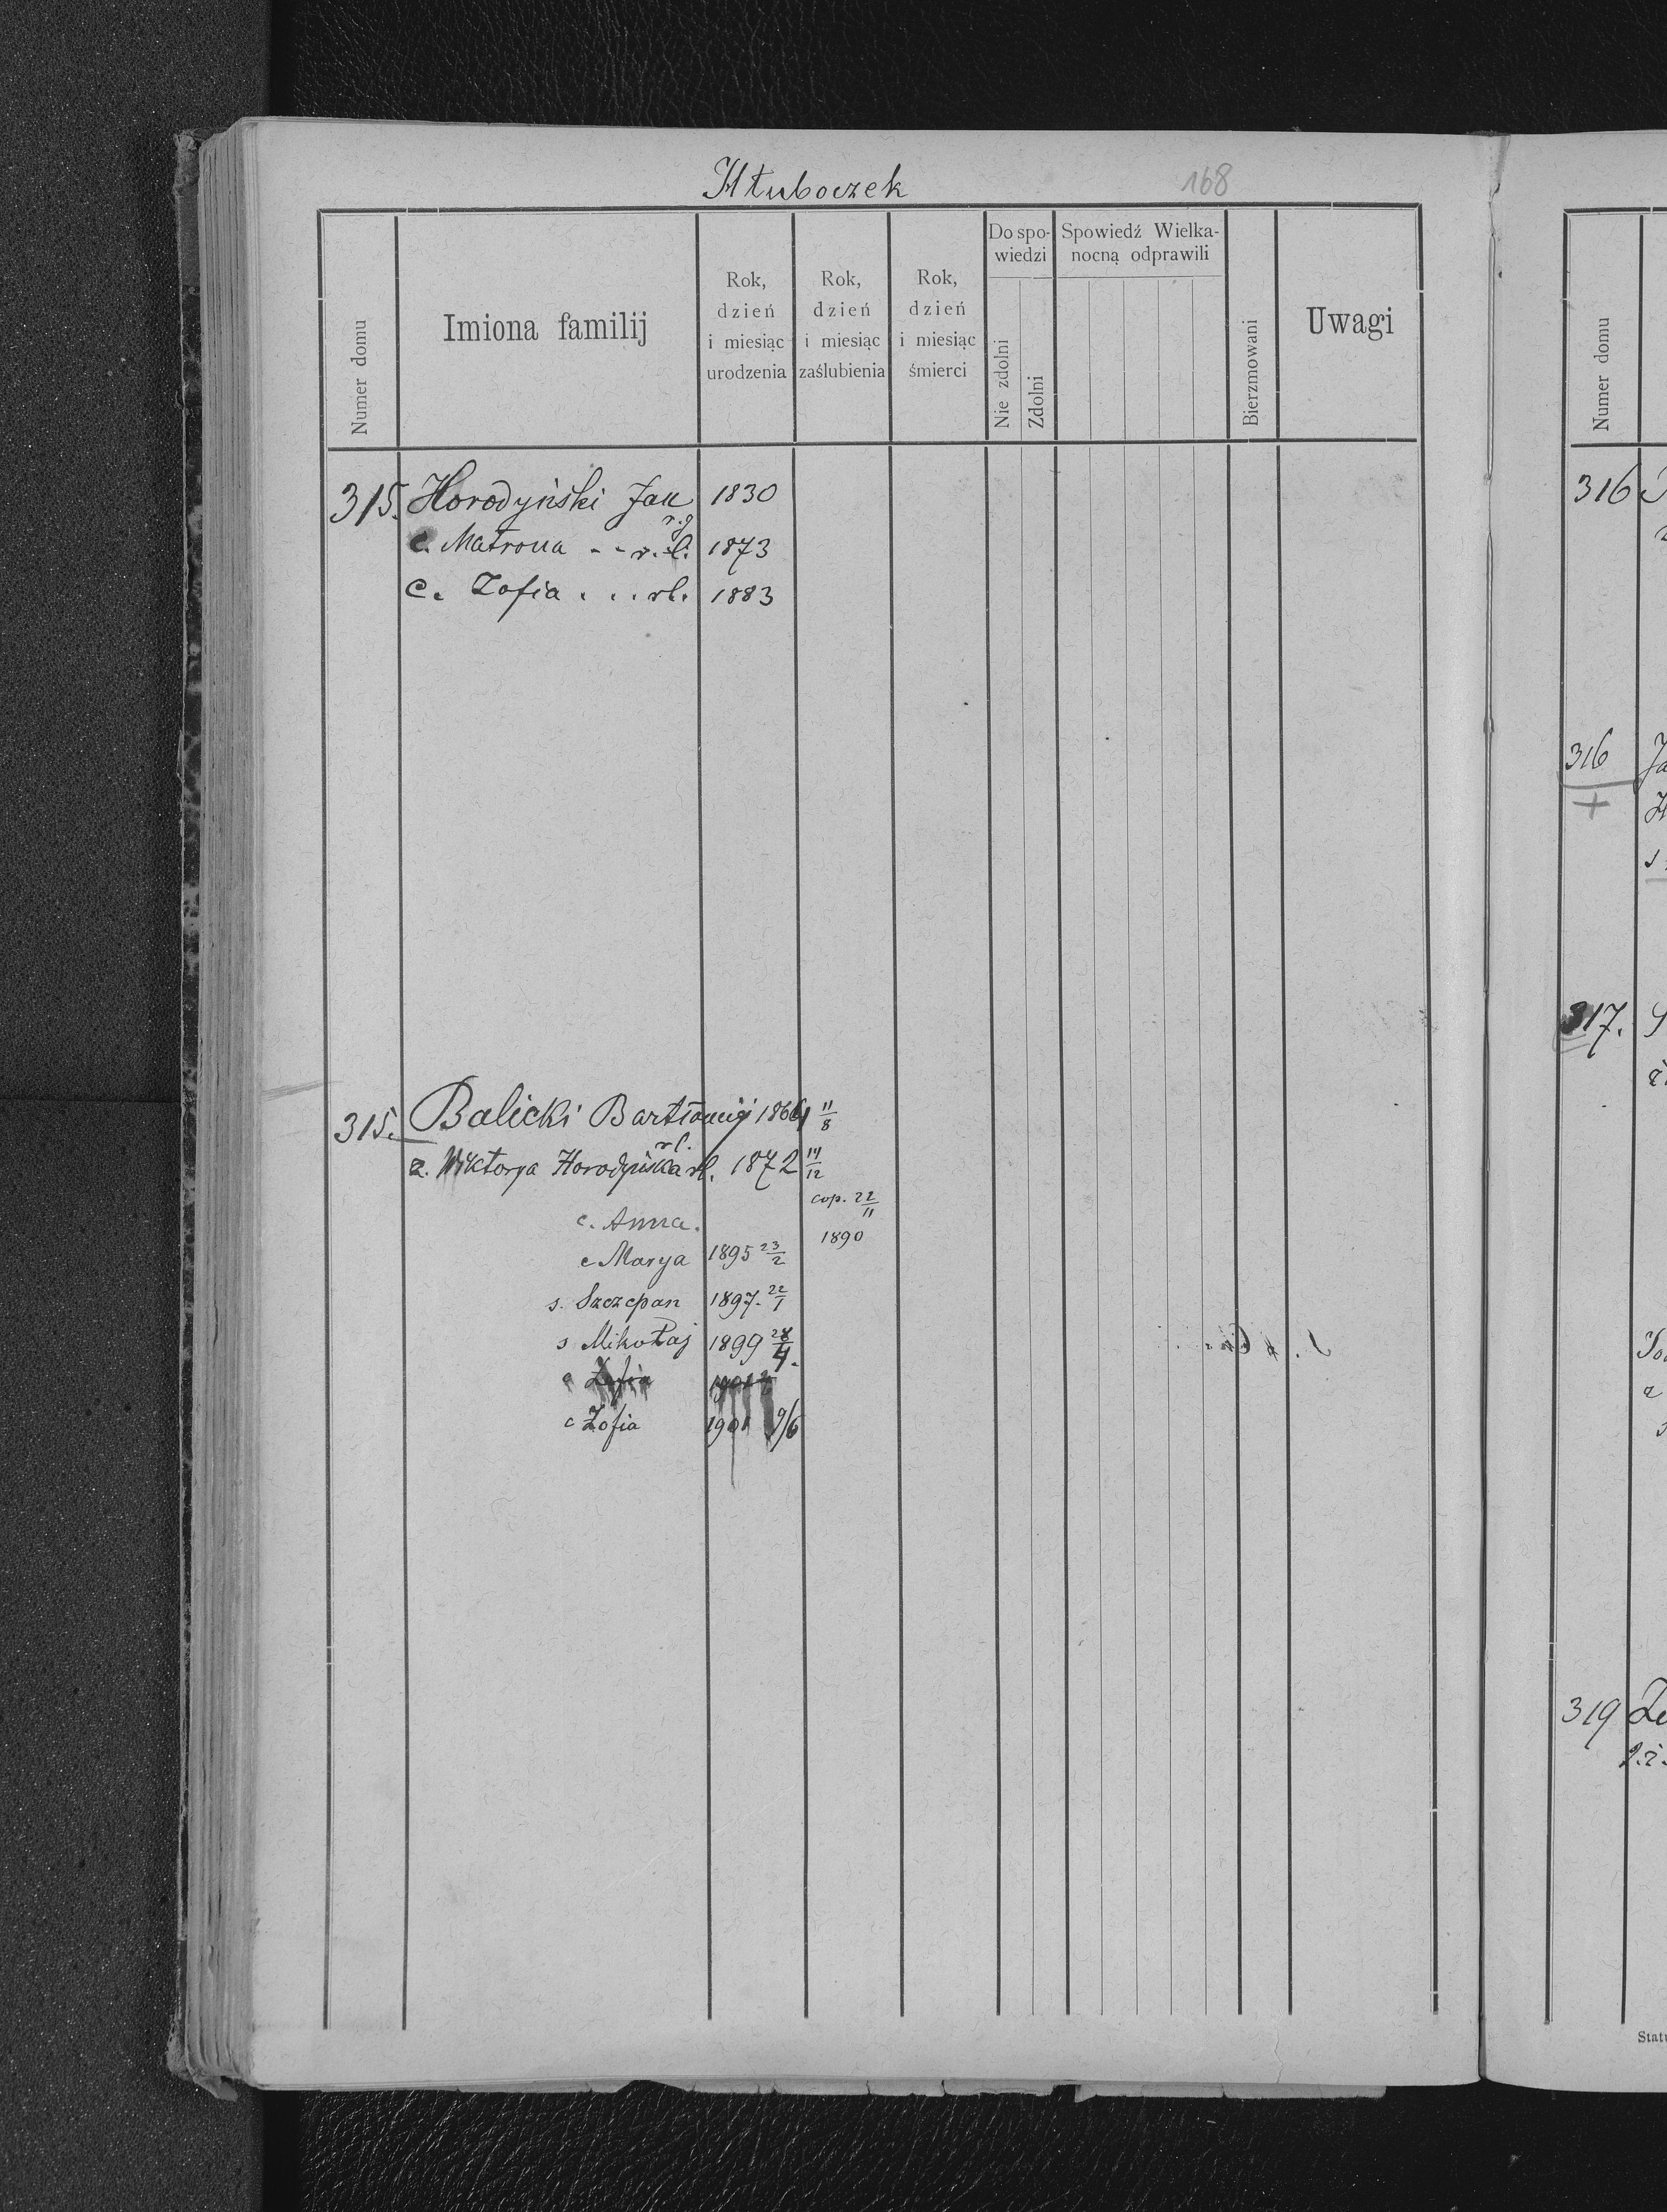 Hłuboczek 168
Numer domu
Imiona familij
Rok, dzień i miesiąc urodzenia
Rok, dzień i miesiąc zaślubienia
Rok, dzień i miesiąc śmierci
Do spowiedzi
Nie zdolni
Zdolni
Spowiedź Wielka-
nocną odprawili
Bierzmowani
Uwagi
Numer domu
315. Horodyński Jan 1830
r.g
c. Matrona - - r. l. 1873
c. Zofia . . . rl. 1883
315. Balicki Bartłomij 1864 11/8
rl.
ż. Wiktorya Horodyńska rl. 1872 14/12
cop. 22/11
1890
c. Anna.
c Marya 1895 23/2
s. Szczepan 1897. 22/1
s Mikołaj 1899 28/4.
c Zofia
c Zofia 1901 9/6
316
316
+
317.
319